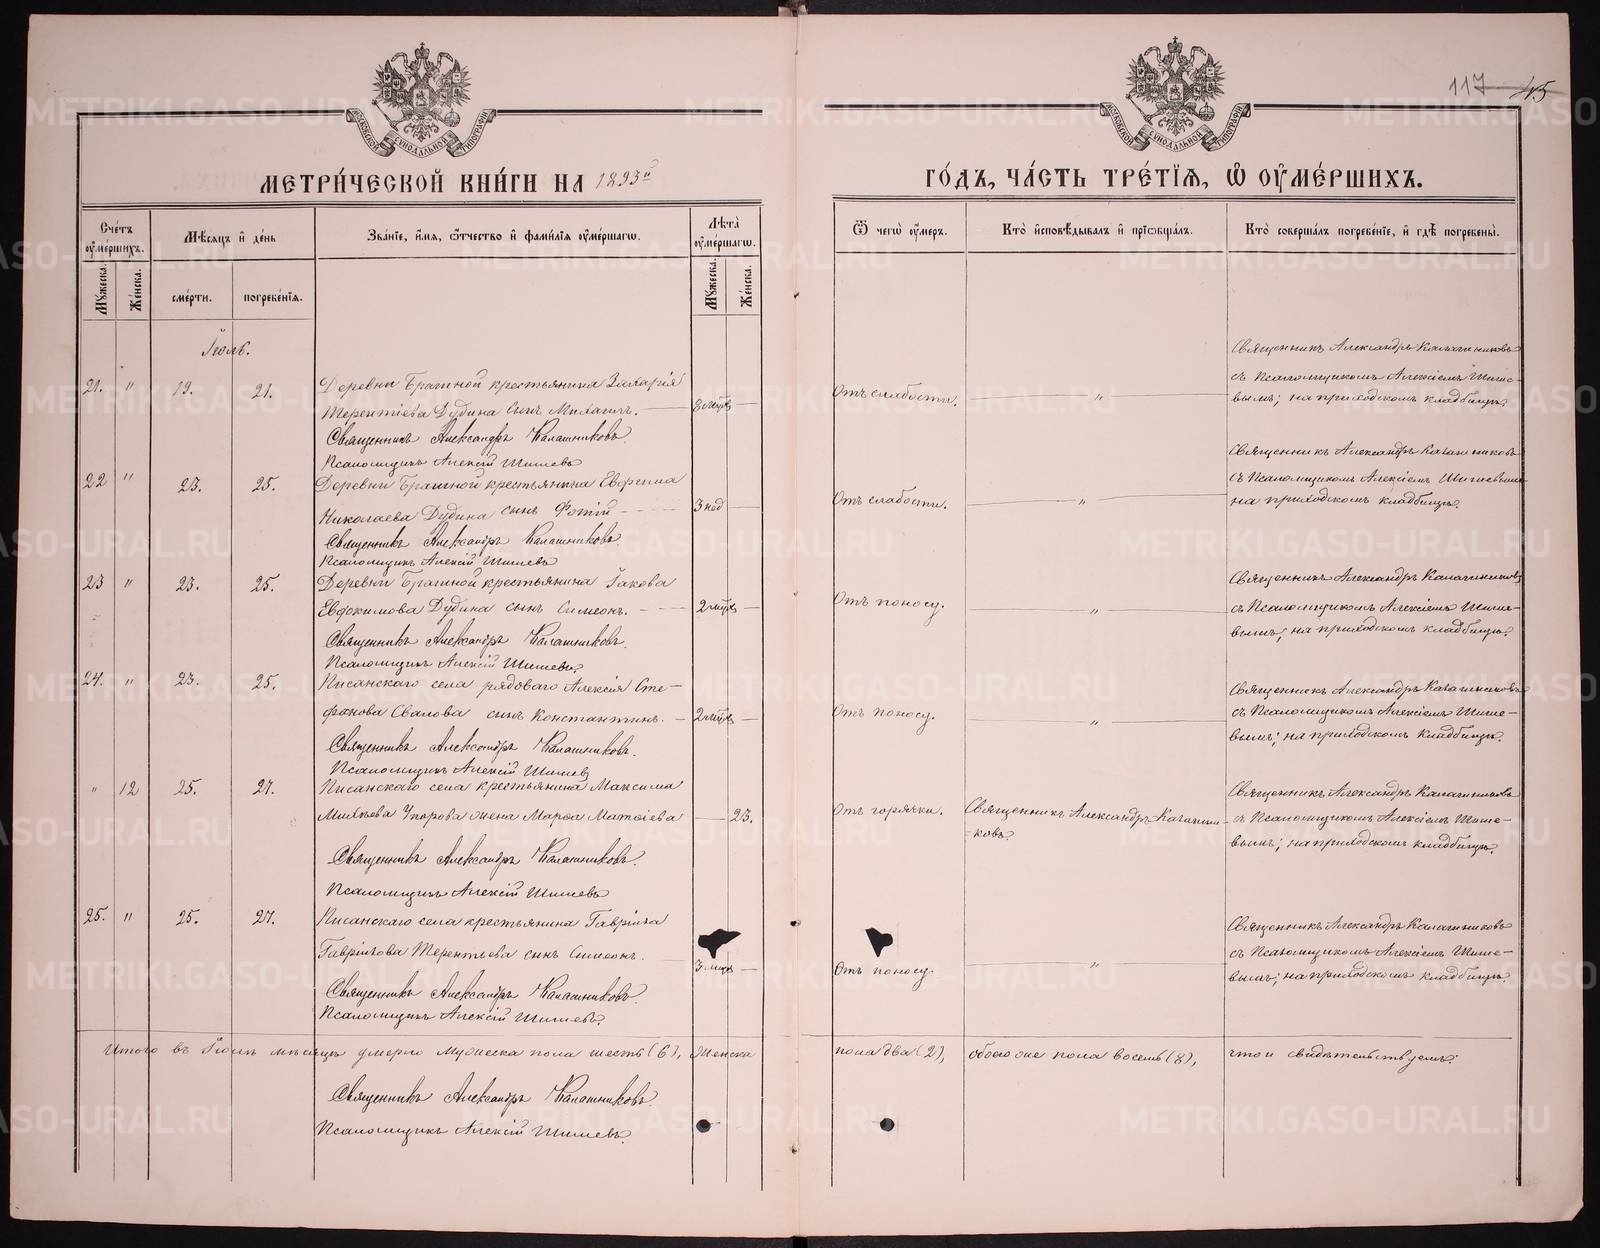 117 45
МОСКОВСКОЙ СѴНОДАЛЬНОЙ ТИПОГРАФІИ
МОСКОВСКОЙ СѴНОДАЛЬНОЙ ТИПОГРАФІИ
МЕТРИ́ЧЕСКОЙ КНИ́ГИ НА 1893й
ГО́ДЪ, ЧА́СТЬ ТРЕ́ТІѦ, Ѽ ОУ҆МЕ́РШИХЪ.
Сче́тъ оу҆ме́ршихъ.
Мꙋ́жеска.
Же́нска.
Мѣ́сѧцъ и҆ де́нь
сме́рти.
погребе́нїѧ.
Зва́нїе, и҆́мѧ, ѻ҆́тчество и҆ фами́лїѧ оу҆ме́ршагѡ.
Лѣ́та оу҆ме́ршагѡ.
Мꙋ́жеска.
Же́нска.
Ѿ чегѡ̀ оу҆́меръ.
Кто̀ и҆сповѣ́дывалъ и҆ прїѡбща́лъ.
Кто̀ соверша́лъ погребе́нїе, и҆ гдѣ̀ погребены̀.
Іюль.
21. " 19. 21. Деревни Брагиной крестьянина Захарія
Терентіева Дудина сынъ Михаилъ. 8 мцъ
Священникъ Александръ Калашниковъ.
Псаломщикъ Алексій Шишевъ
Отъ слабости. "
Священникъ Александръ Калашниковъ
съ Псаломщикомъ Алексіемъ Шише-
вымъ; на приходскомъ кладбищѣ.
22 " 23. 25. Деревни Брагиной крестьянина Евфима
Николаева Дудина сынъ Фотій 3 нед
Священникъ Александръ Калашниковъ
Псаломщикъ Алексій Шишевъ
Отъ слабости. "
Священникъ Александръ Калашниковъ
съ Псаломщикомъ Алексіемъ Шишевымъ
на приходскомъ кладбищѣ.
23 " 23. 25. Деревни Брагиной крестьянина Іакова
Евдокимова Дудина сынъ Симеонъ. 2 мцъ
Священникъ Александръ Калашниковъ.
Псаломщикъ Алексій Шишевъ.
Отъ поносу. "
Священникъ Александръ Калашниковъ
съ Псаломщикомъ Алексіемъ Шише-
вымъ; на приходскомъ кладбищѣ.
24. " 23. 25. Писанскаго села рядоваго Алексія Сте-
фанова Свалова сынъ Константинъ. 2 мцъ
Священникъ Александръ Калашниковъ.
Псаломщикъ Алексій Шишевъ
Отъ поносу. "
Священникъ Александръ Калашниковъ
съ Псаломщикомъ Алексіемъ Шише-
вымъ; на приходскомъ кладбищѣ.
" 12 25. 27. Писанскаго села крестьянина Максима
Упорова жена Марѳа Матѳіева 23.
Священникъ Александръ Калашниковъ.
Псаломщикъ Алексій Шишевъ
Отъ горячки. Священникъ Александръ Калашни-
ковъ.
Священникъ Александръ Калашниковъ
съ Псаломщикомъ Алексіемъ Шише-
вымъ; на приходскомъ кладбищѣ.
25. " 25. 27. Писанскаго села крестьянина Гавріила
Гавріилова Терентьева сынъ Симеонъ. 3 мцъ
Священникъ Александръ Калашниковъ.
Псаломщикъ Алексій Шишевъ.
Отъ поносу. "
Священникъ Александръ Калашниковъ
съ Псаломщикомъ Алексіемъ Шише-
вымъ; на приходскомъ кладбищѣ.
Итого въ Іюлѣ мѣсяцѣ умерло мужеска пола шесть (6), женска пола два (2), обоего же пола восемь (8), что и свидѣтельствуемъ:
Священникъ Александръ Калашниковъ
Псаломщикъ Алексій Шишевъ.
METRIKI.GASO-URAL.RU